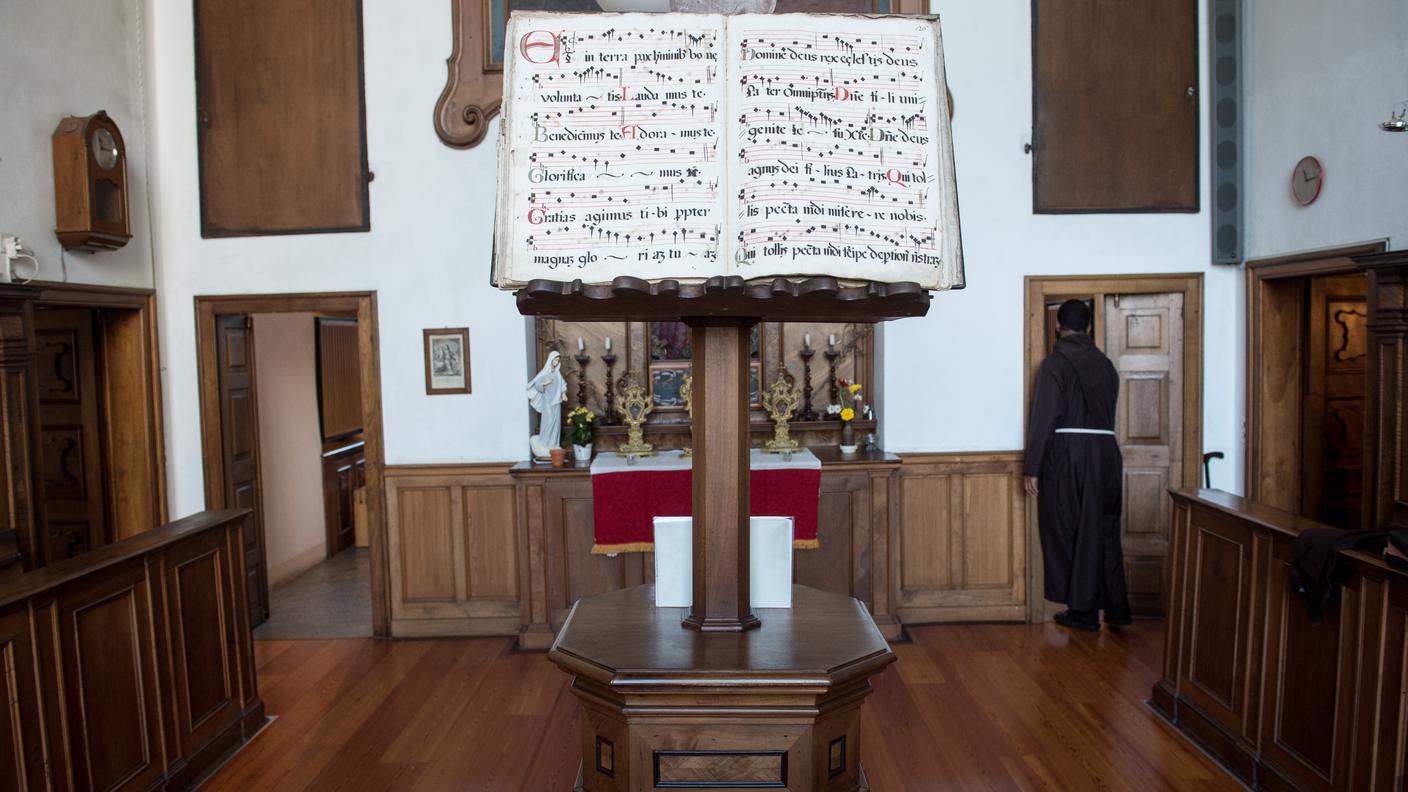 Et in terra pax hminib bo ne
volunta ~ tis. Lauda mus te.
Benedicimus te. Adora - mus te.
Glorifica ~ ~ mus te.
Gratias agimus ti - bi ppter
magnaz glo ~ ri az tu ~ az
120
Domine deus rex celestis deus
Pa ter omnipotens Dne fi - li uni
genite Ie ~ su xpe. Dne deus
agnus dei fi - lius Pa - tris. Qui tol
lis pecta mdi misere - re nobis.
Qui tollis pecta mdi